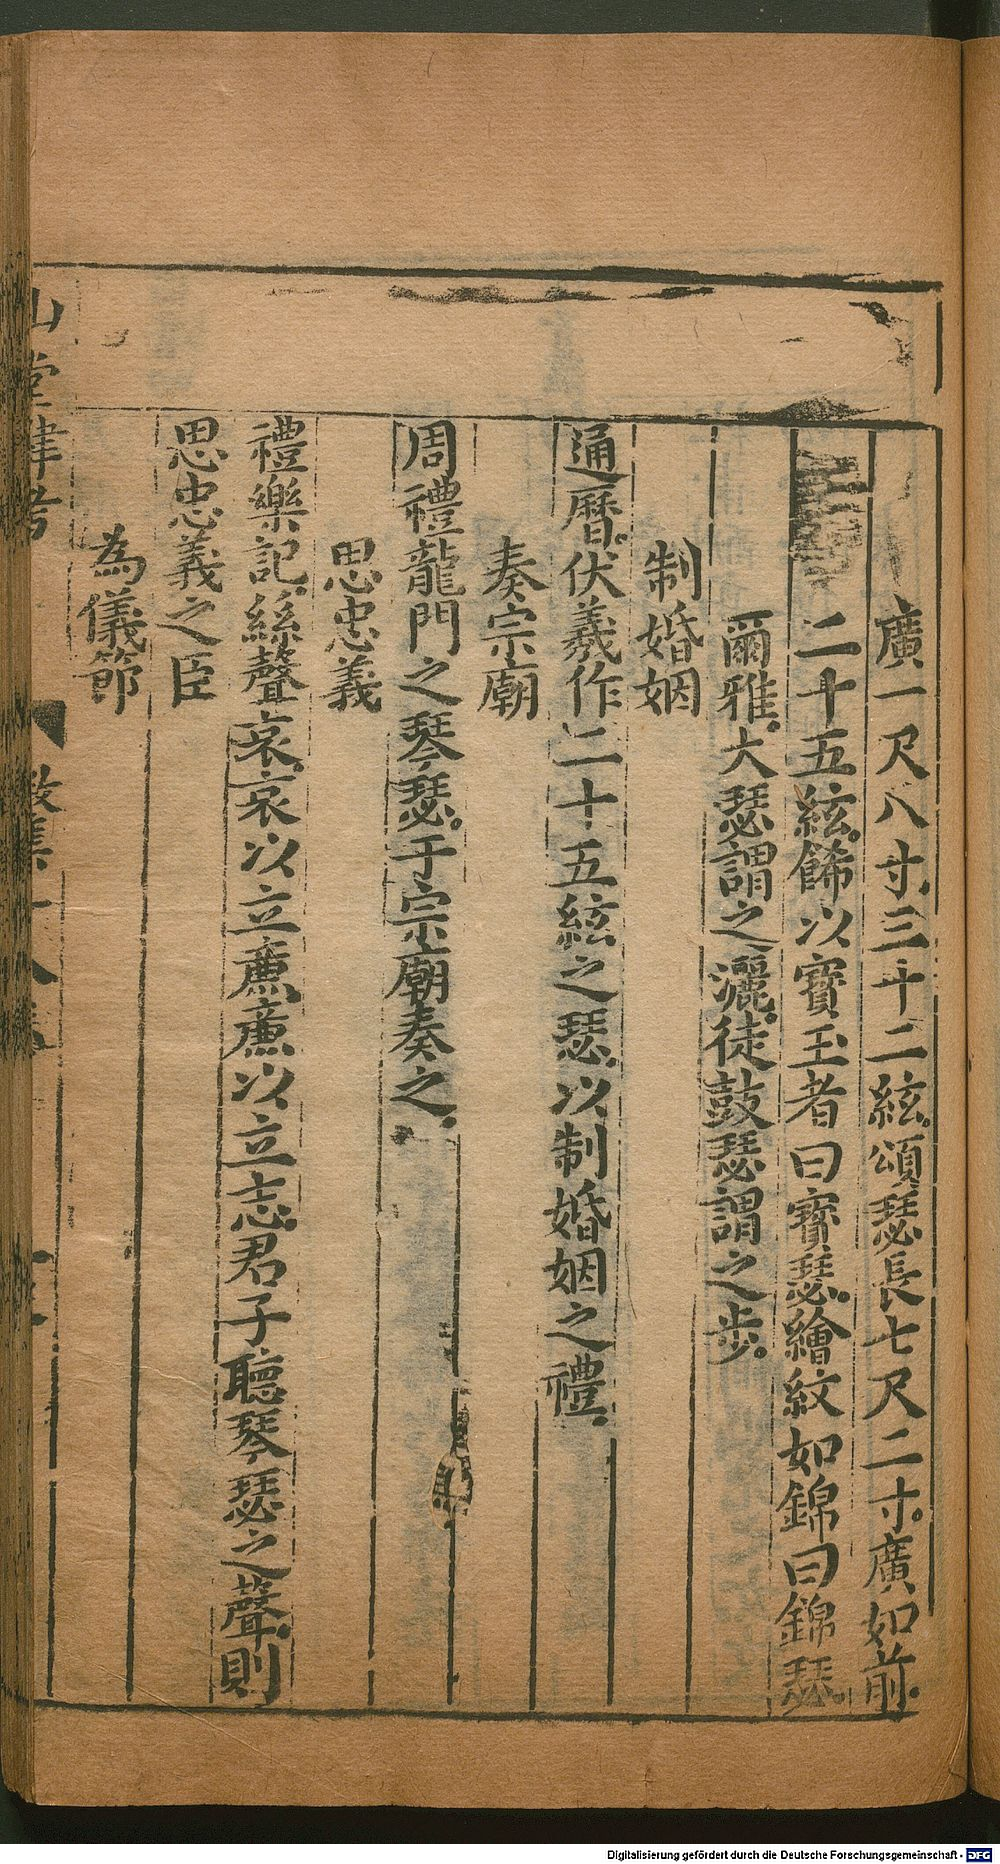 廣一尺八寸三十二絃頌瑟長七尺二寸廣如前
二十五絃餙以寳玉者曰寳瑟繪紋如錦曰錦瑟
爾雅大瑟謂之灑徒鼓瑟謂之步
制婚姻
通曆伏羲作二十五絃之瑟以制婚姻之禮
奏宗廟
周禮龍門之琴瑟于宗廟奏之
思忠義
禮樂記絲聲哀哀以立亷亷以立志君子聽琴瑟之聲則
思忠義之臣
為儀節
山堂肆考
Digitalisierung gefördert durch die Deutsche Forschungsgemeinschaft - DFG